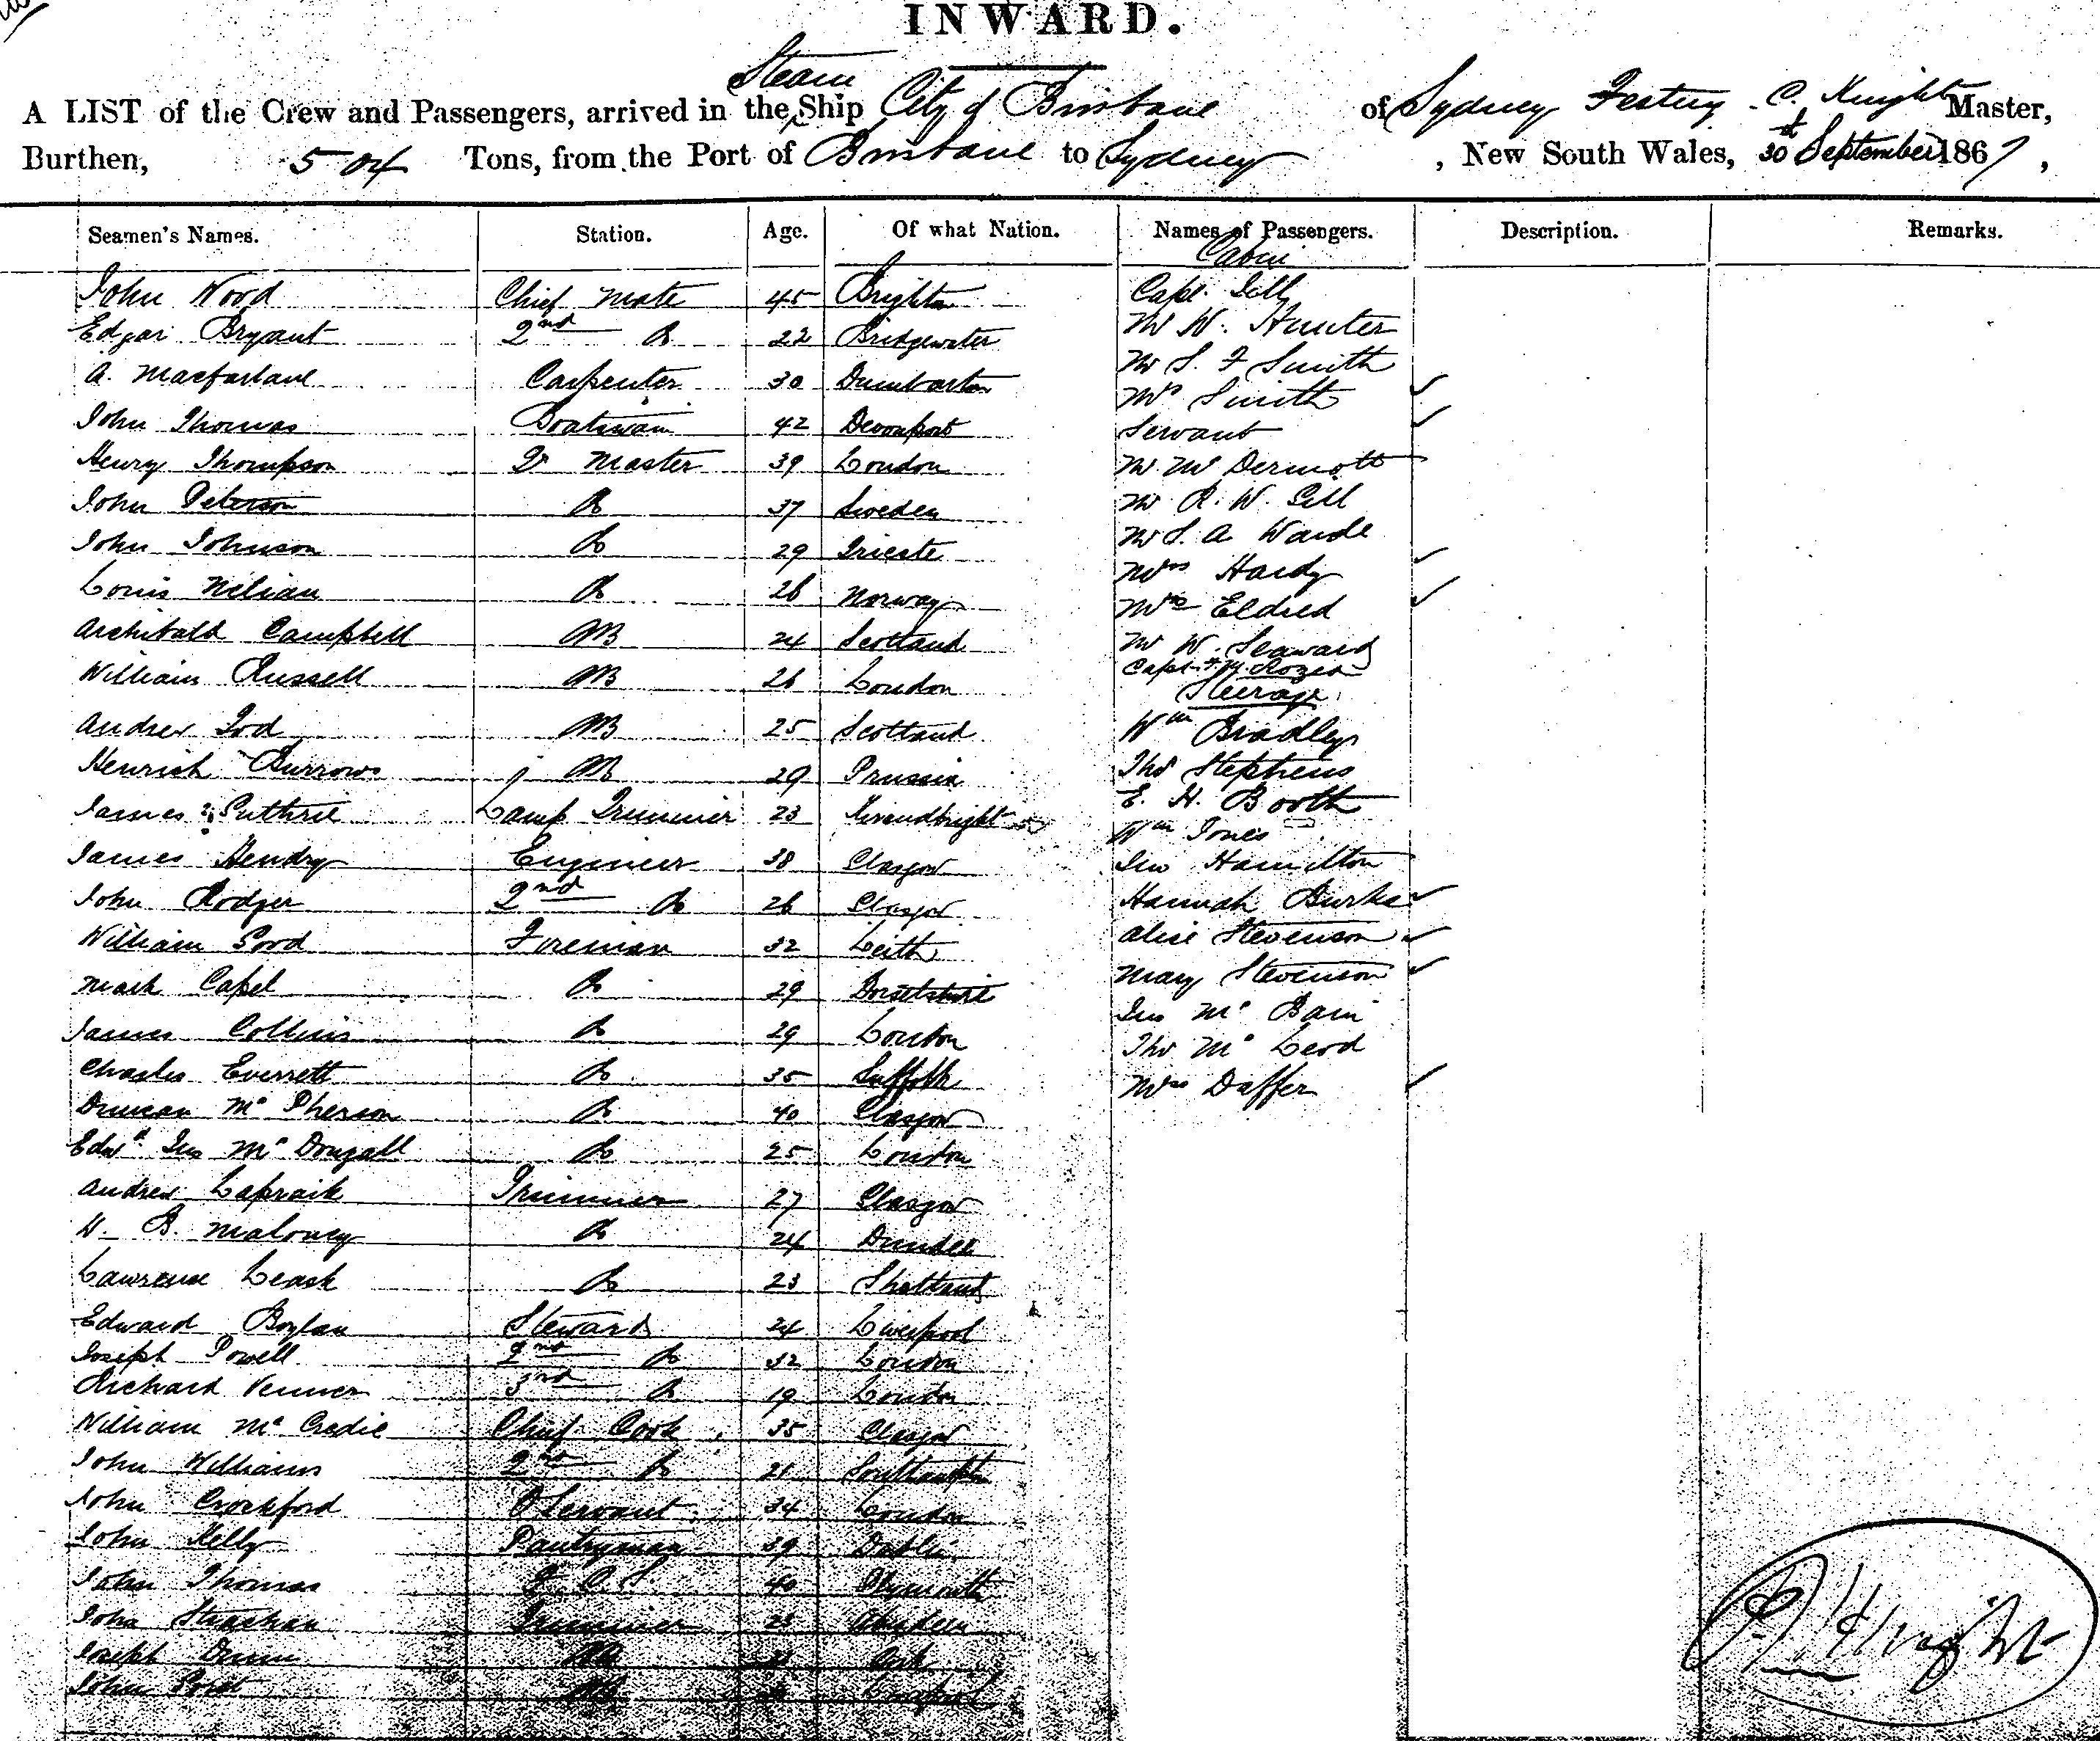 INWARD.
Steam
A LIST of the Crew and Passengers, arrived in the Ship City of Brisbane of Sydney C. Knight Master,
Burthen, 504 Tons, from the Port of Brisbane to Sydney, New South Wales, 30 September 1867,
Seamen's Names. Station. Age. Of what Nation. Names of Passengers. Description. Remarks.
Cabin
John Wood Chief Mate 45 Brighton Capt.
Edgar Bryant 2nd Do 22 Bridgewater Mr W. Hunter
A. Macfarlane Carpenter 30 Dumbarton Mr S. F Smith
Mrs Smith
John Thomas Boatswain 42 Devonport Servant
Henry Thompson Qr Master 39 London Mr Mc Dermott
John Peterson Do 37 Sweden Mr R. W. Gill
John Johnson Do 29 Trieste Mr S. A Warde
Mrs Hardy
Louis Do 26 Norway Mrs Eldred
Archibald Campbell AB 24 Scotland Mr W. Seaward
Capt
William Russell AB 26 London Steerage
Andrew AB 25 Scotland Wm Bradley
Henrich Burrows AB 29 Prussia Thos Stephens
E. H. Booth
James Guthrie Lamp Trimmer 23 Wm Jones
James Hendry Engineer 38 Glasgow Jno Hamilton
John Rodger 2nd Do 26 Glasgow Hannah Burke
William Fireman 32 Leith Alice Stevenson
Mark Capel Do 29 Dorsetshire Mary Stevenson
Jno Mc Bain
James Collins Do 29 London Thos Mc Leod
Charles Everrett Do 35 Suffolk Mrs Daffer
Duncan Mc Pherson Do 40 Glasgow
Edwd Jno Mc Dougall Do 25 London
Andrew Lapraik Trimmer 27 Glasgow
B. Maloney Do 24 Dundee
Lawrence Leask Do 23 Shetland
Edward Boylan Steward 24 Liverpool
Joseph Powell 2nd Do 32 London
Richard Venner 3rd Do 19 London
William Mc Credie Chief Cook 35 Glasgow
John Williams 2nd Do 21 Southampton
John Crockford Servant 34 London
John Kelly Pantryman 39 Dublin
John Thomas 40 Plymouth
John Strachan Trimmer Aberdeen
Joseph AB Cork
John AB Liverpool
Knight